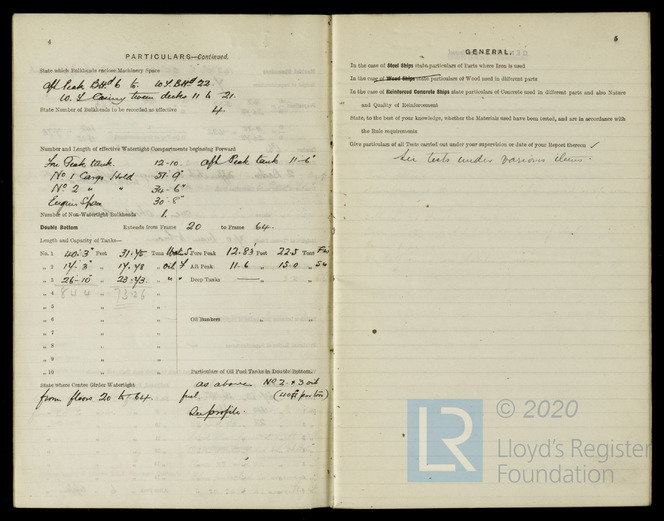 4
PARTICULARS—Continued.
State which Bulkheads enclose Machinery Space
Aft Peak BHd 6 to W.T. BHd 22.
W.T. tween decks 11 to 21.
State Number of Bulkheads to be recorded as effective 4.
Number and Length of effective Watertight Compartments beginning Forward
Fore Peak tank. 12-10. Aft Peak tank 11-6"
No 1 Cargo Hold 31-9"
No 2 " " 34-6"
Engine Space 30-8"
Number of Non-Watertight Bulkheads 1.
Double Bottom Extends from Frame 20 to Frame 64.
Length and Capacity of Tanks—
No. 1 40-3" Feet 31.75 Tons Fore Peak 12.83 Feet 22.5 Tons FW
„ 2 17-3" „ 17.78 „ oil Aft Peak 11.6 „ 15.0 „ SW
„ 3 26-10 „ 23.73 „ " Deep Tanks — „ „
„ 4 84.4 73.26
„ 5
„ 6 Oil Bunkers „ „
„ 7
„ 8
„ 9
„ 10 Particulars of Oil Fuel Tanks in Double Bottom.
State where Centre Girder Watertight as above No 2 & 3 oil
from floors 20 to 64. fuel. (40ft per ton)
See profile.
5
GENERAL.
In the case of Steel Ships state particulars of Parts where Iron is used
In the case of Wood Ships state particulars of Wood used in different parts
In the case of Reinforced Concrete Ships state particulars of Concrete used in different parts and also Nature
and Quality of Reinforcement
State, to the best of your knowledge, whether the Materials used have been tested, and are in accordance with
the Rule requirements
Give particulars of all Tests carried out under your supervision or date of your Report thereon ✓
See tests under various items.
© 2020
LR
Lloyd's Register
Foundation